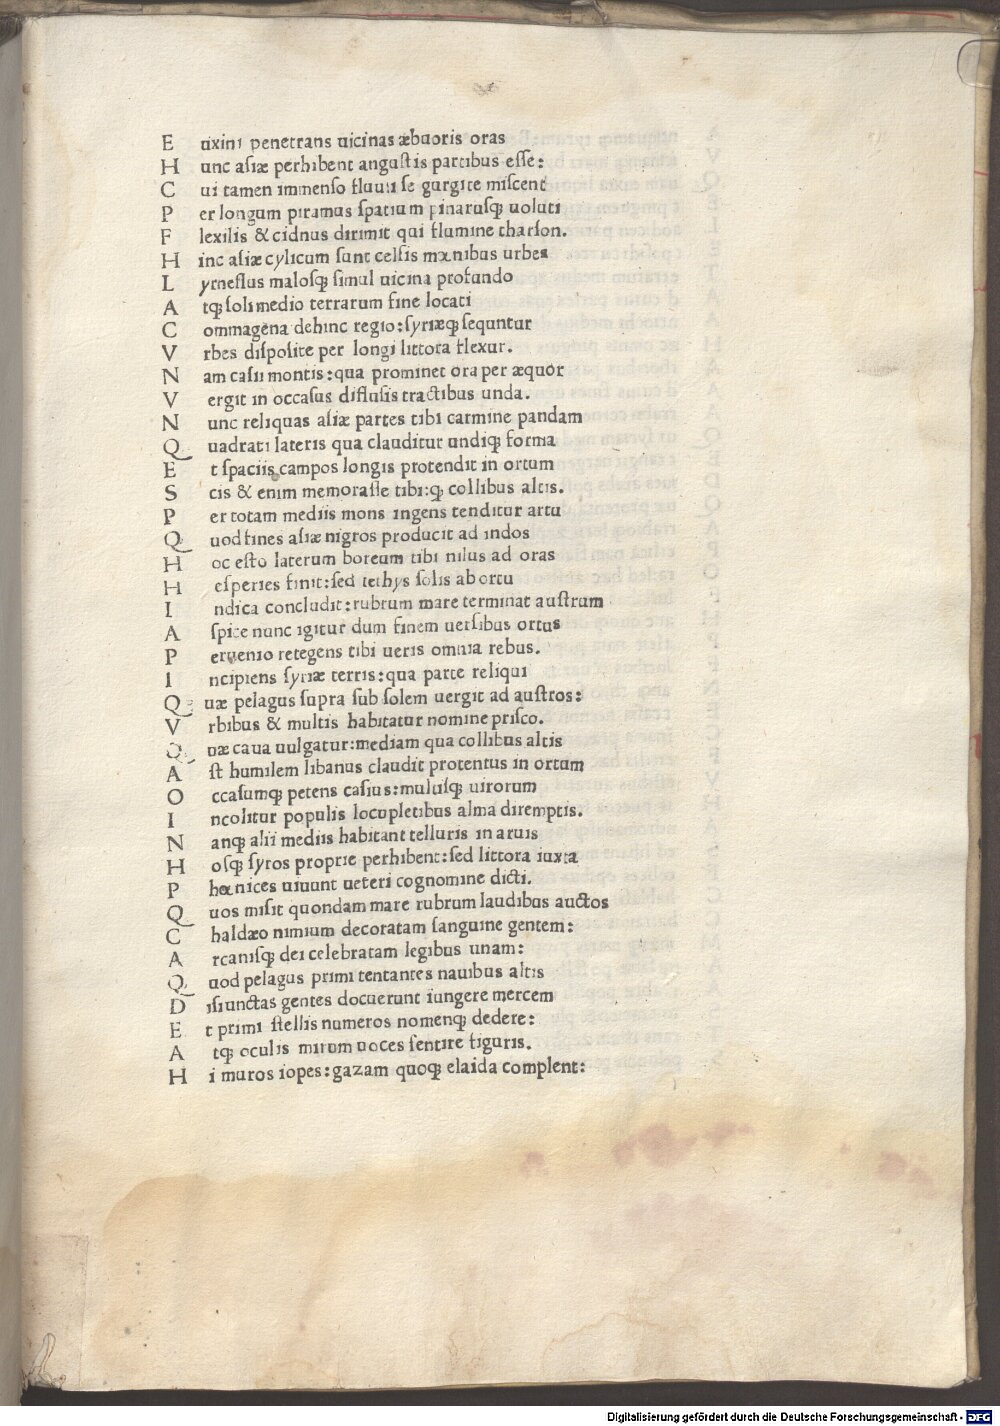 E uxini penetrans uicinas æbuoris oras
H unc asiæ perhibent angustis partibus esse:
C ui tamen immenso fluuii se gurgite miscent
P er longum piramus spatium pinarusq; uoluti
F lexilis & cidnus dirimit qui flumine tharson.
H inc asiæ cylicum sunt celsis mœnibus urbes
L yrnessus malosq; simul uicina profundo
A tq; soli medio terrarum fine locati
C ommagena dehinc regio: syriæq; sequntur
V rbes disposite per longi littora flexur.
N am casii montis: qua prominet ora per æquor
V ergit in occasus diffusis tractibus unda.
N unc reliquas asiæ partes tibi carmine pandam
Q uadrati lateris qua clauditur undiq; forma
E t spaciis campos longis protendit in ortum
S cis & enim memorasse tibi: q; collibus altis.
P er totam mediis mons ingens tenditur artu
Q uod fines asiæ nigros producit ad indos
H oc esto laterum boreum tibi nilus ad oras
H esperies finit: sed tethys solis ab ortu
I ndica concludit: rubrum mare terminat austrum
A spice nunc igitur dum finem uersibus ortus
P eruenio retegens tibi ueris omnia rebus.
I ncipiens syriæ terris: qua parte reliqui
Q uæ pelagus supra sub solem uergit ad austros:
V rbibus & multis habitatur nomine prisco.
Q uæ caua uulgatur: mediam qua collibus altis
A st humilem libanus claudit protentus in ortum
O ccasumq; petens casius: multisq; uirorum
I ncolitur populis locupletibus alma diremptis.
N anq; alii mediis habitant telluris in aruis
H osq; syros proprie perhibent: sed littora iuxta
P hœnices uiuunt ueteri cognomine dicti.
Q uos misit quondam mare rubrum laudibus auctos
C haldæo nimium decoratam sanguine gentem:
A rcanisq; dei celebratam legibus unam:
Q uod pelagus primi tentantes nauibus altis
D isiunctas gentes docuerunt iungere mercem
E t primi stellis numeros nomenq; dedere:
A tq; oculis mirum uoces sentire figuris.
H i muros iopes: gazam quoq; elaida complent:
Digitalisierung gefördert durch die Deutsche Forschungsgemeinschaft - DFG